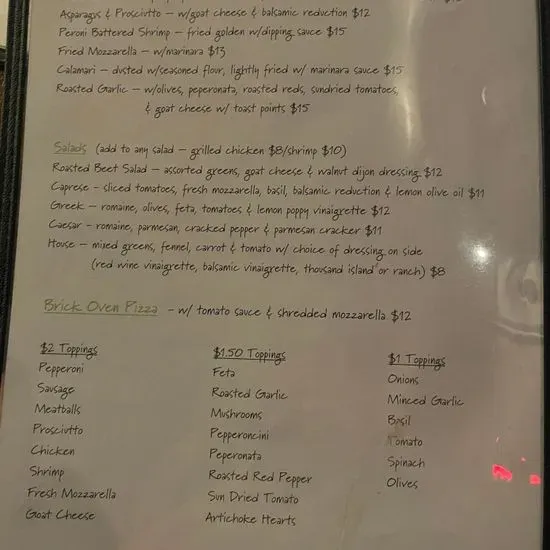 Asparagus & Prosciutto – w/goat cheese & balsamic reduction $12
Peroni Battered Shrimp – fried golden w/dipping sauce $15
Fried Mozzarella – w/marinara $13
Calamari – dusted w/seasoned flour, lightly fried w/ marinara sauce $15
Roasted Garlic – w/olives, peperonata, roasted reds, sundried tomatoes,
& goat cheese w/ toast points $15
Salads (add to any salad – grilled chicken $8/shrimp $10)
Roasted Beet Salad – assorted greens, goat cheese & walnut dijon dressing $12
Caprese – sliced tomatoes, fresh mozzarella, basil, balsamic reduction & lemon olive oil $11
Greek – romaine, olives, feta, tomatoes & lemon poppy vinaigrette $12
Caesar – romaine, parmesan, cracked pepper & parmesan cracker $11
House – mixed greens, fennel, carrot & tomato w/ choice of dressing on side
(red wine vinaigrette, balsamic vinaigrette, thousand island or ranch) $8
Brick Oven Pizza – w/ tomato sauce & shredded mozzarella $12
$2 Toppings
Pepperoni
Sausage
Meatballs
Prosciutto
Chicken
Shrimp
Fresh Mozzarella
Goat Cheese
$1.50 Toppings
Feta
Roasted Garlic
Mushrooms
Pepperoncini
Peperonata
Roasted Red Pepper
Sun Dried Tomato
Artichoke Hearts
$1 Toppings
Onions
Minced Garlic
Basil
Tomato
Spinach
Olives